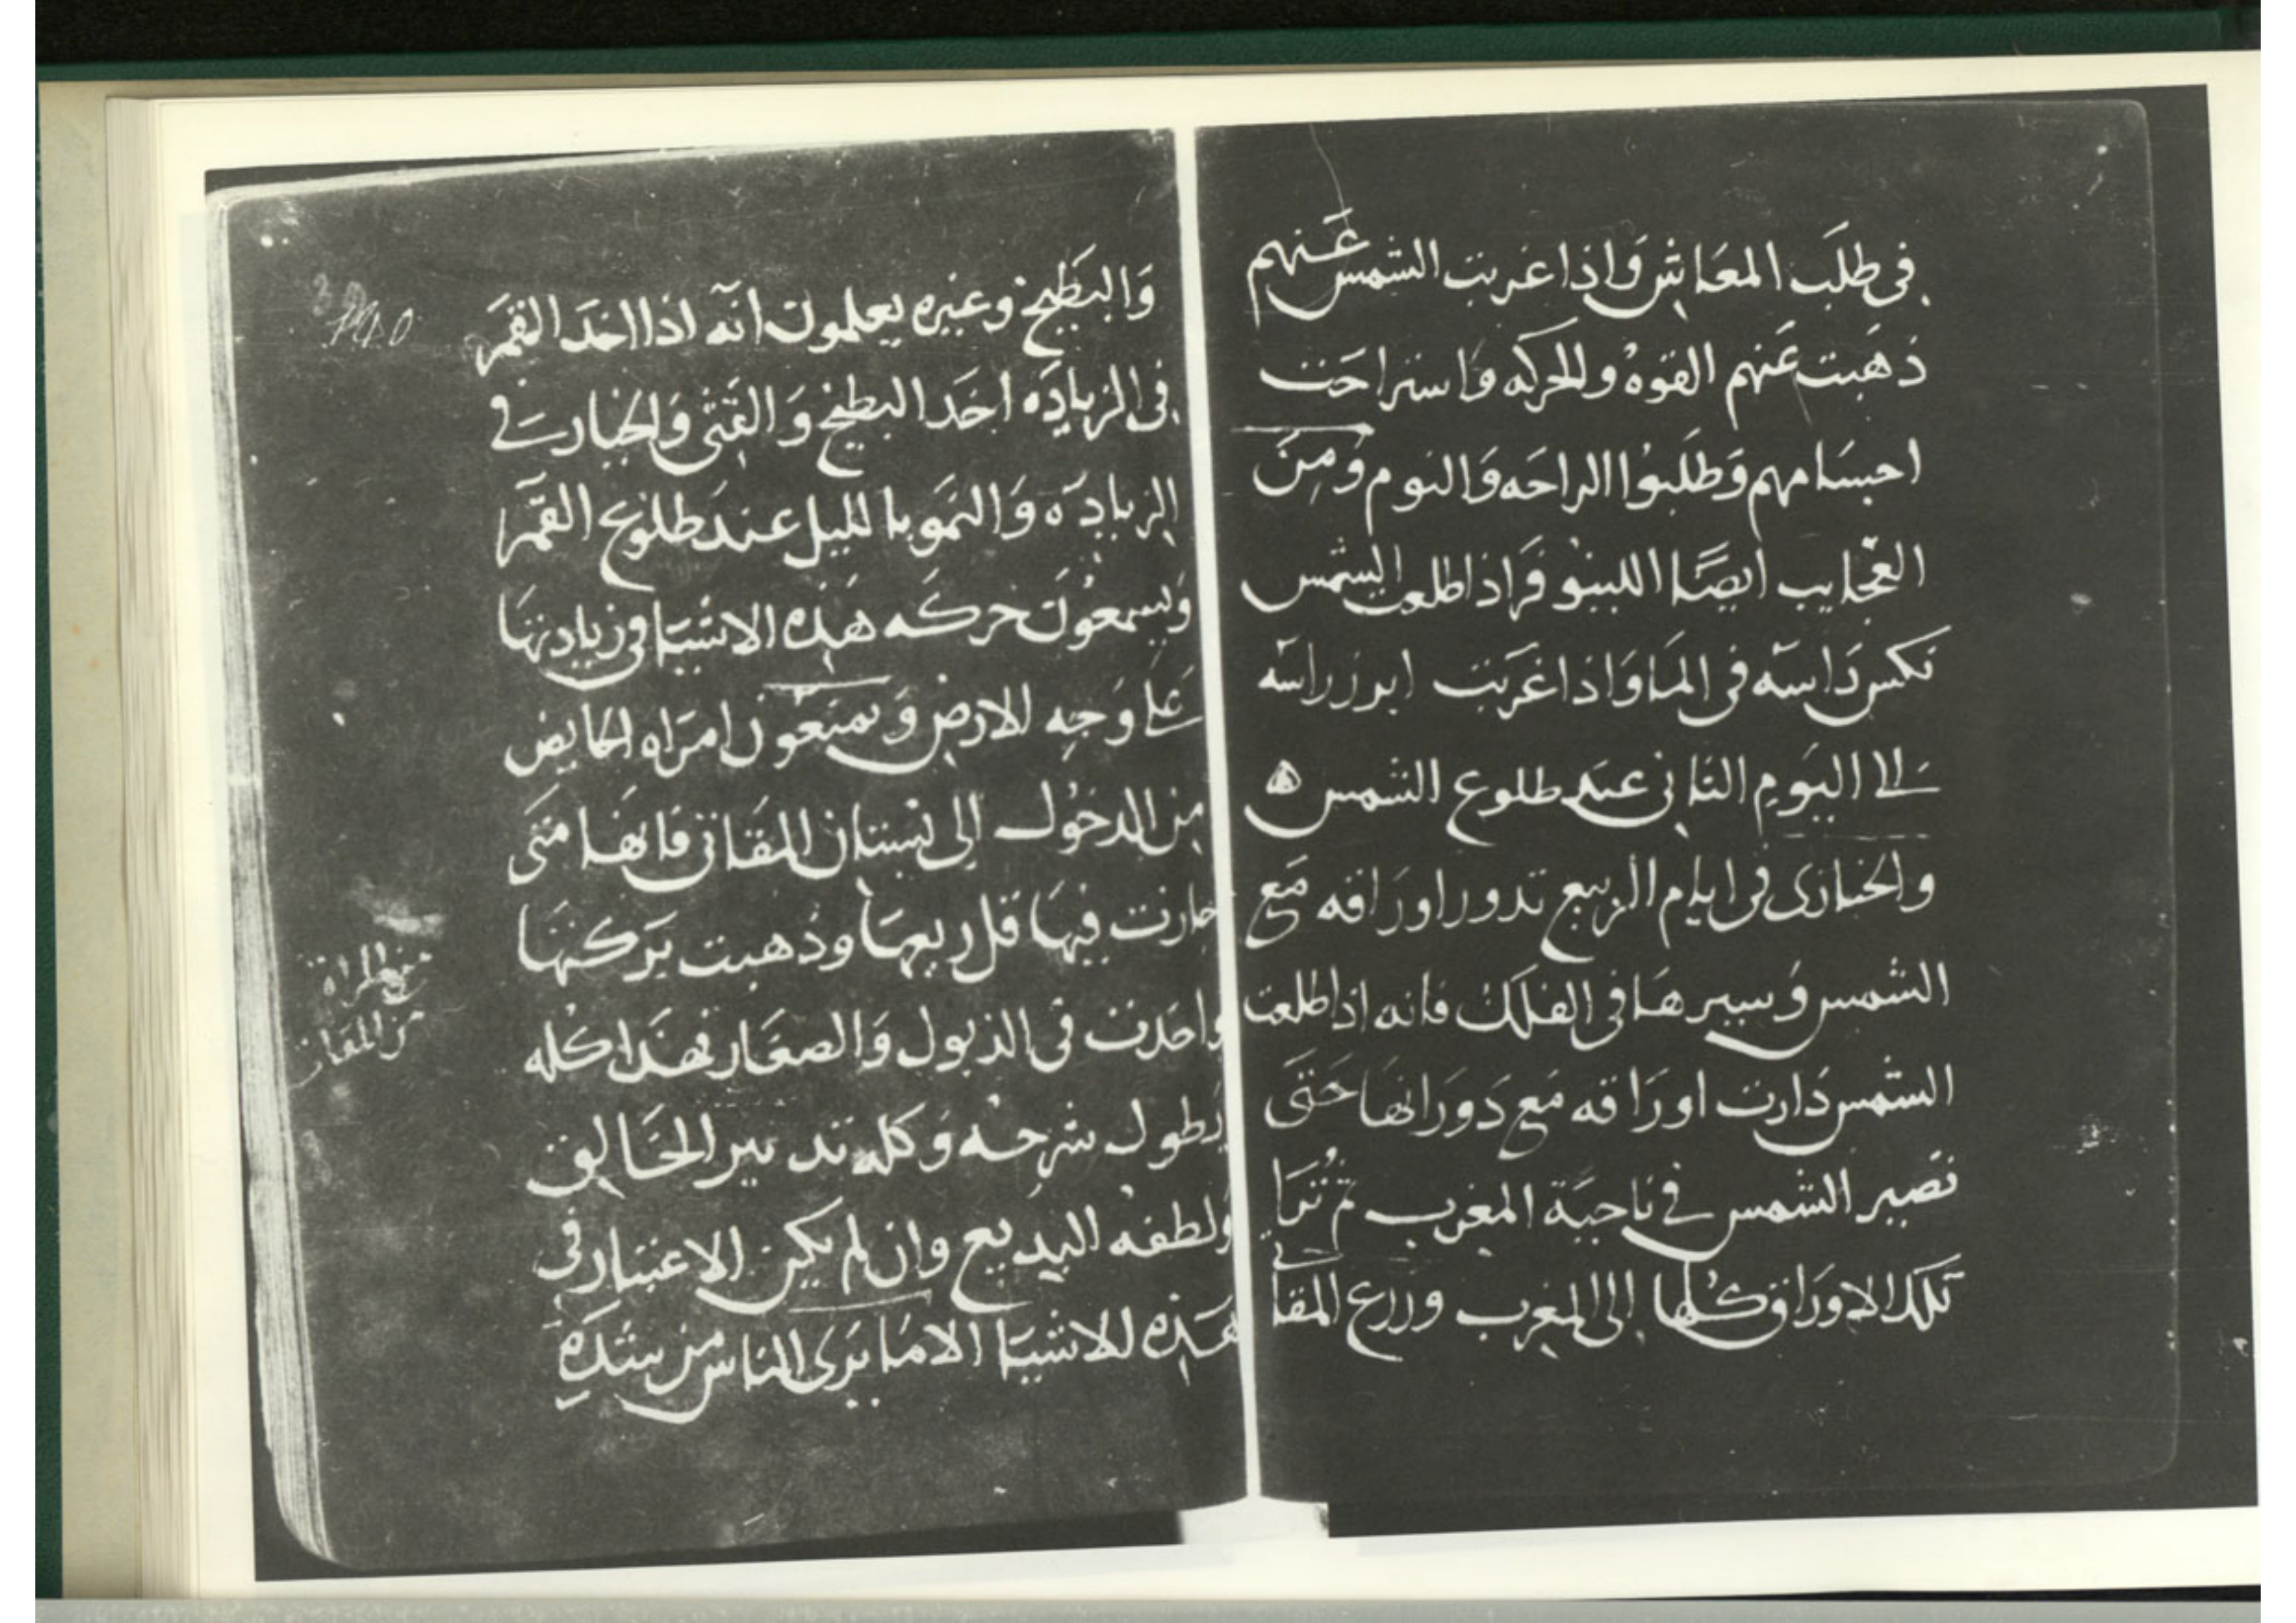 في طلب المعاش واذا غربت الشمس عنهم
ذهبت عنهم القوه والحركه واستراحت
اجسامهم وطلبوا الراحه والنوم ومن
العجايب ايضًا اللينوفر اذا طلعت الشمس
نكس راسه في الما واذا غربت ابرز راسه
الى اليوم الثاني عند طلوع الشمس
والخبازى في ايام الربيع تدور اوراقه مع
الشمس وسيرها في الفلك فانه اذا طلعت
الشمس دارت اوراقه مع دورانها حتى
تصير الشمس في ناحية المغرب ثم
تلك الاوراق كلها الى المغرب وزرع المقاتي
والبطيخ وغيره يعلمون انه اذا اخذ القمر
في الزياده اخذ البطيخ والقثى والخيار في
الزياده والنمو بالليل عند طلوع القمر
ويسمعون حركه هذه الاشيا في زيادتها
على وجه الارض ويمنعون امراه الحايض
من الدخول الى بستان المقاتي فانها متى
جازت فيها قل ريعها وذهبت بركتها
واخذت في الذبول والصغار فهذا كله
يطول شرحه وكله تدبير الخالق
ولطفه البديع وان لم يكن الاعتبار في
هذه الاشيا الا ما يرى الناس من شده
المراة
من المقاتي